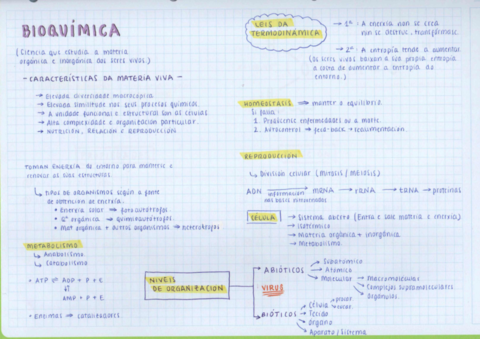 BIOQUÍMICA
(Ciencia que estudia a materia
orgánica e inorgánica dos seres vivos.)
- CARACTERÍSTICAS DA MATERIA VIVA -
→ Elevada diversidade macroscópica
→ Elevada similitude nos seus procesos químicos.
→ A unidade funcional e estructural son as células.
→ Alta complexidade e organización particular.
→ NUTRICIÓN, RELACIÓN E REPRODUCIÓN
TOMAN ENERXÍA do entorno para manterse e
renovar as súas estructuras.
↳ TIPOS DE ORGANISMOS según a fonte
de obtención de enerxía.
• Enerxía solar → fotoautótrofos
• Cª orgánica → quimioautótrofos
• Mat orgánica + outros organismos → heterótrofos
METABOLISMO
↳ Anabolismo
↳ Catabolismo
• ATP ⇌ ADP + P + E
AMP + P + E
• Enzimas → catalizadores
LEIS DA
TERMODINÁMICA
→ 1ª - A enerxía non se crea
nin se destrúe, transfórmase.
→ 2ª - A entropía tende a aumentar
(Os seres vivos baixan a súa propia entropía
a costa de aumentar a entropía do
entorno.)
HOMEOSTASIS → manter o equilibrio
Si falla:
1. Prodúcense enfermidades ou a morte.
2. Autocontrol → feed-back → realimentación.
REPRODUCIÓN
↳ División celular (MITOSIS / MEIOSIS)
ADN → mRNA → rRNA → tRNA → proteínas
información
nas bases nitroxenadas
CÉLULA
→ Sistema aberto (Entra e sale materia e enerxía)
→ Isotérmico
→ Materia orgánica + inorgánica
→ Metabolismo.
NIVEIS
DE ORGANIZACIÓN
ABIÓTICOS
→ Subatómico
→ Atómico
→ Molecular
→ Macromoléculas
→ Complexos supramoleculares
→ Orgánulos
VIRUS
BIÓTICOS
→ Célula
→ Tecido
→ Órgano
→ Aparato / Sistema